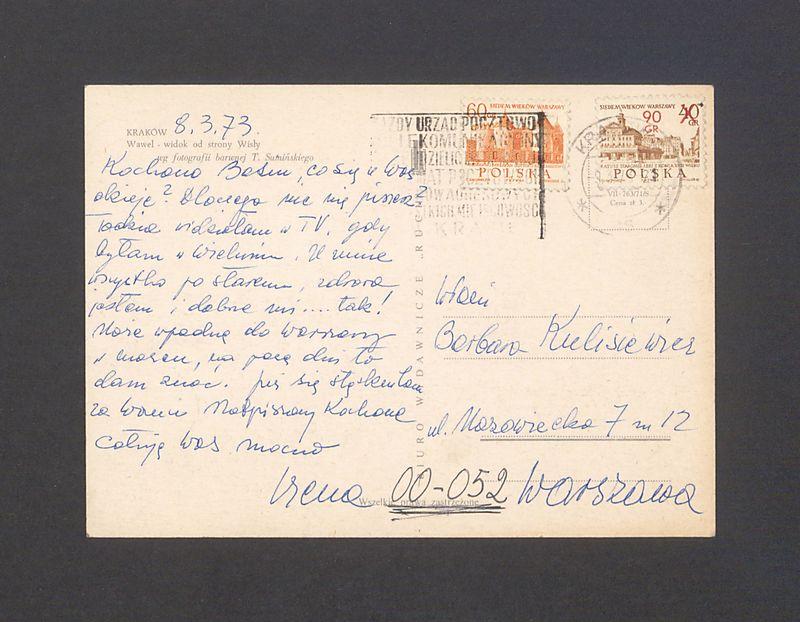 8.3.73.
KRAKÓW
Wawel - widok od strony Wisły
wg fotografii barwnej T. Sumińskiego
Kochana Basiu, co się u Was
dzieje? Dlaczego nic nie piszesz?
Ciebie widziałam w TV, gdy
byłam w Wieluniu. U mnie
wszystko po staremu, zdrowa
jestem i dobrze mi.... tak!
Może wpadnę do Warszawy
w marcu, na parę dni to
dam znać. Już się stęskniłam
za Wami. Napiszcie Kochana
całuję Was mocno
Irena
BIURO WYDAWNICZE „RUCH”
Wszelkie prawa zastrzeżone
60
SIEDEM WIEKÓW WARSZAWY
POLSKA
SIEDEM WIEKÓW WARSZAWY
40 GR
90
GR
POLSKA
URZĄD POCZTOWO
VII-763/716
Cena zł 3.
Barbara Kulisiewicz
ul. Mazowiecka 7 m 12
00-052 Warszawa